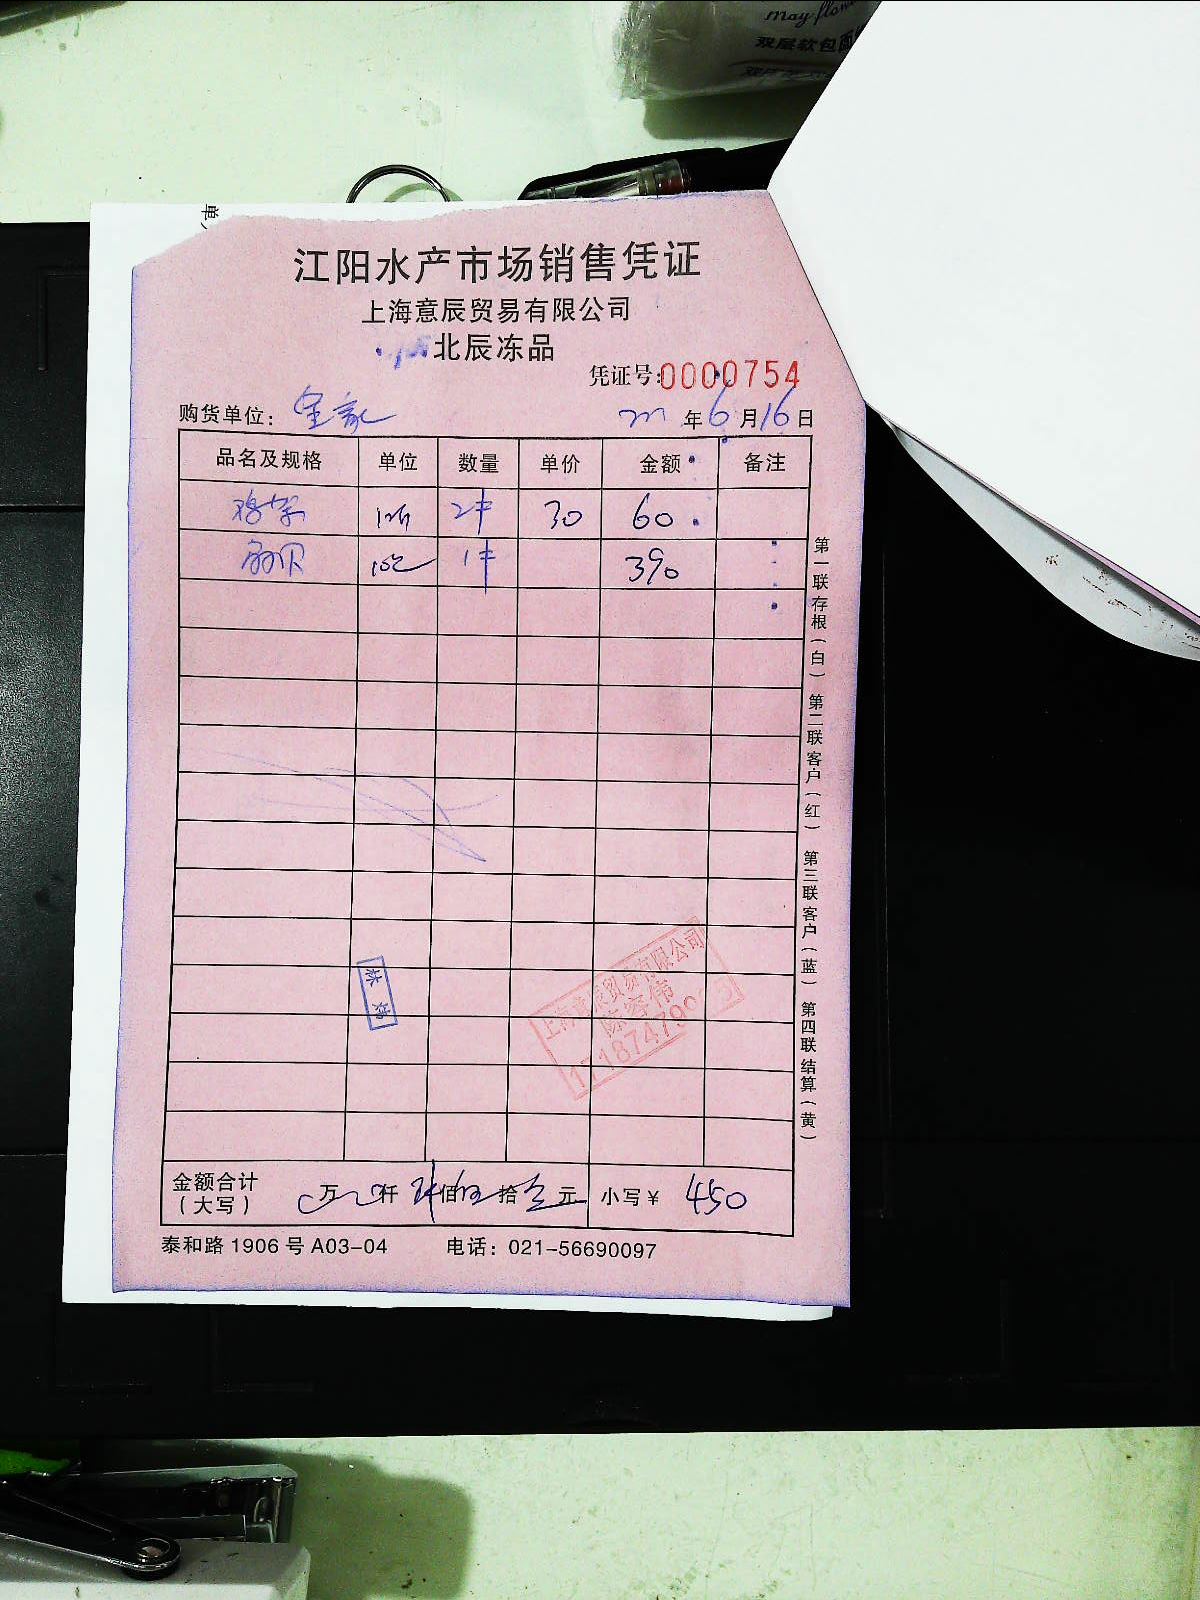 May flow
双层软包
单
江阳水产市场销售凭证
上海意辰贸易有限公司
北辰冻品
凭证号:0000754
购货单位: 年6月16日
品名及规格 单位 数量 单价 金额 备注
2件 30 60
1件 390
第一联存根(白) 第二联客户(红) 第三联客户(蓝) 第四联结算(黄)
上海意辰贸易有限公司
林炜
金额合计 万 仟 佰 拾 元 小写￥ 450
(大写)
泰和路1906号A03-04 电话: 021-56690097